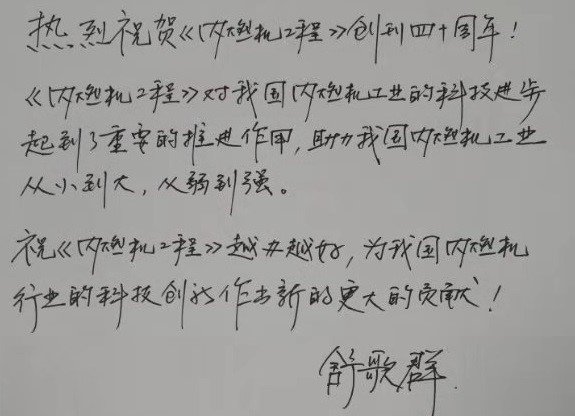 热烈祝贺《内燃机工程》创刊四十周年！
《内燃机工程》对我国内燃机工业的科技进步
起到了重要的推进作用，助力我国内燃机工业
从小到大，从弱到强。
祝《内燃机工程》越办越好，为我国内燃机
行业的科技创新作出新的更大的贡献！
舒歌群